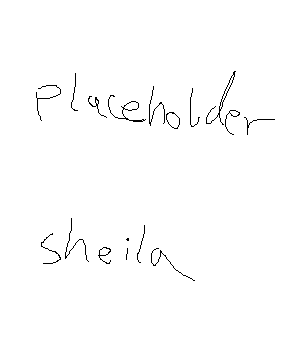 placeholder
sheila